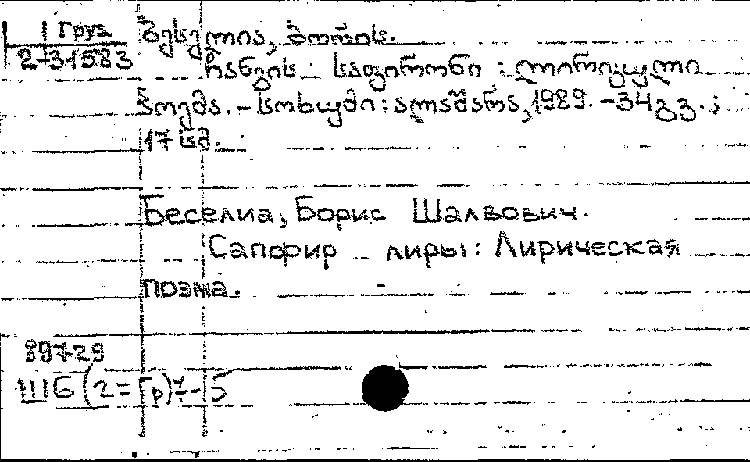 1 груз
2-31583
ბესელია, ბორის.
ჩანგის საფირონი : ლირიკული
პოემა. - სოხუმი: ალაშარა, 1989. - 34გვ. ;
17 სმ.
Беселиа, Борис Шалвович.
Сапфир лиры: Лирическая
поэма.
89729
Ш6(2=Гр)7-5